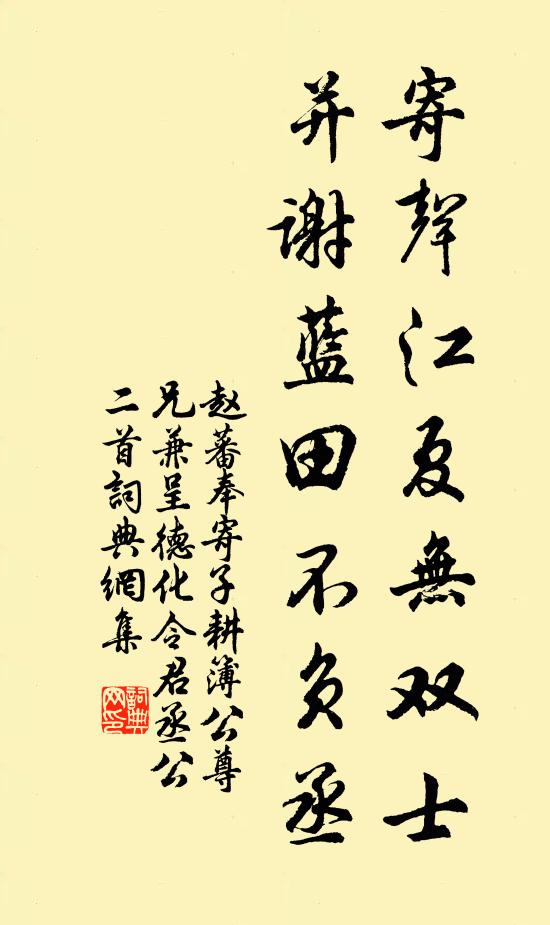 寄聲江夏無双士
并谢蓝田不负丞
赵蕃奉寄子耕簿公尊
兄兼呈德化令君丞公
二首詞典網集
詞典網印